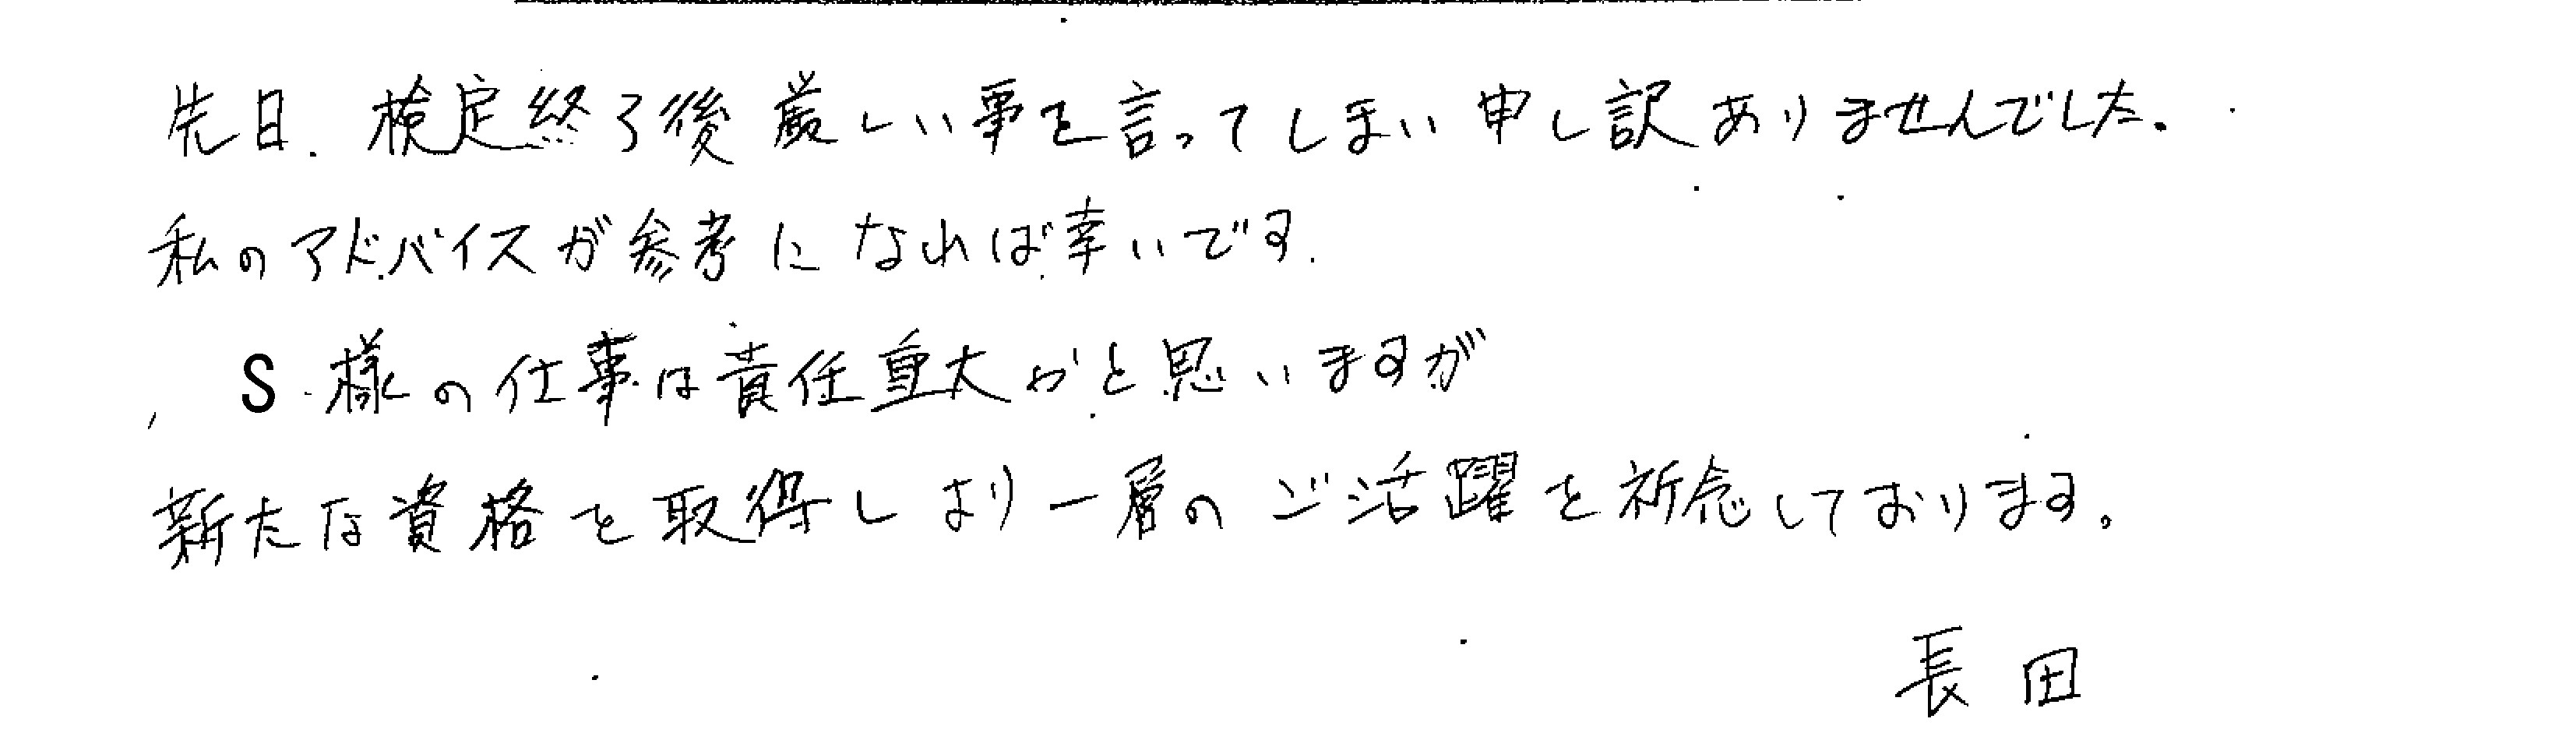 先日、検定終了後厳しい事を言ってしまい申し訳ありませんでした。
私のアドバイスが参考になれば幸いです。
S様の仕事は責任重大かと思いますが
新たな資格を取得しより一層のご活躍を祈念しております。
長田